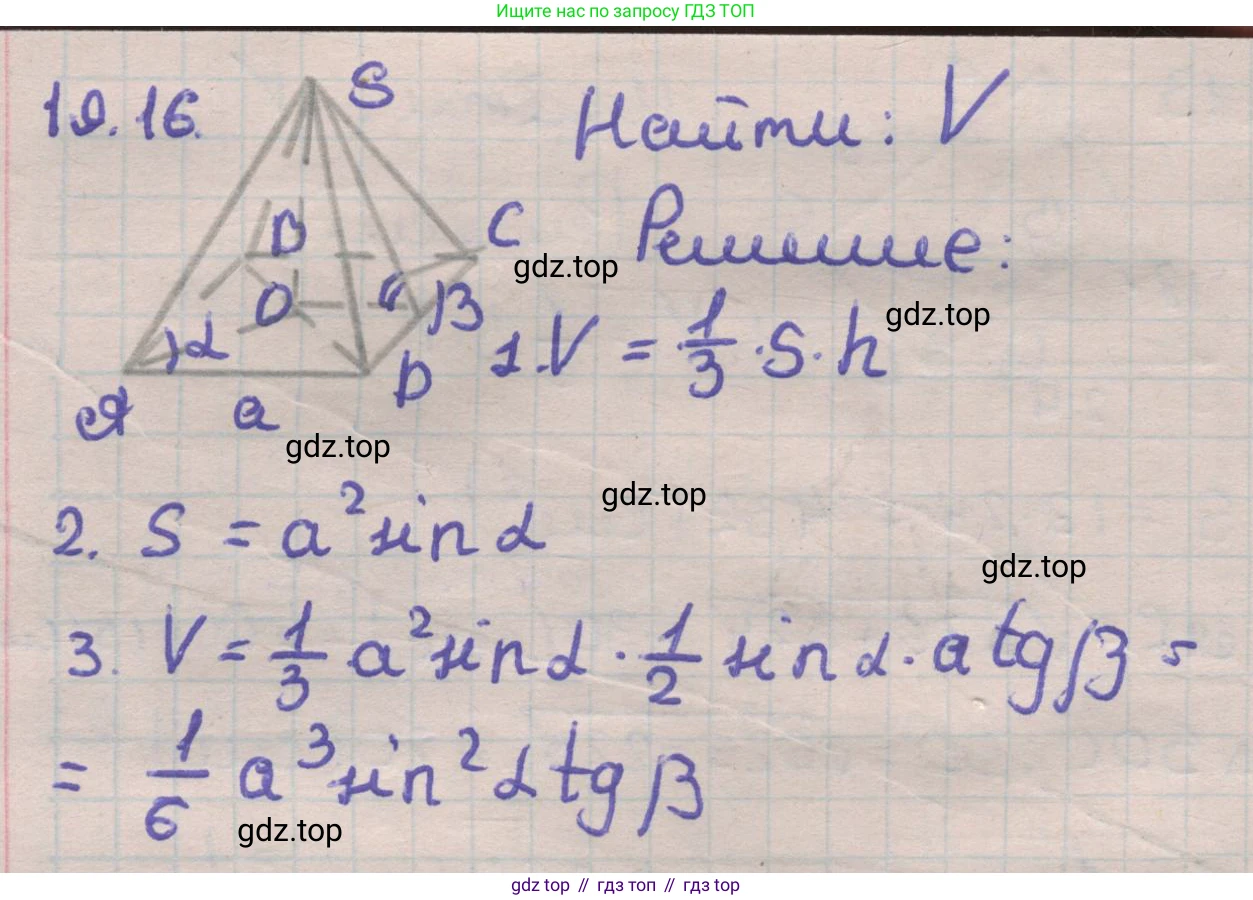 Ищите нас по запросу ГДЗ ТОП
19.16.
S
Найти: V
B
C
gdz.top
Решение:
O
β
gdz.top
α
1. V = 1/3 · S · h
A
a
D
gdz.top
gdz.top
2. S = a² sin α
gdz.top
3. V = 1/3 a² sin α · 1/2 sin α · a tg β =
= 1/6 a³ sin² α tg β
gdz.top
gdz top // гдз топ // gdz top